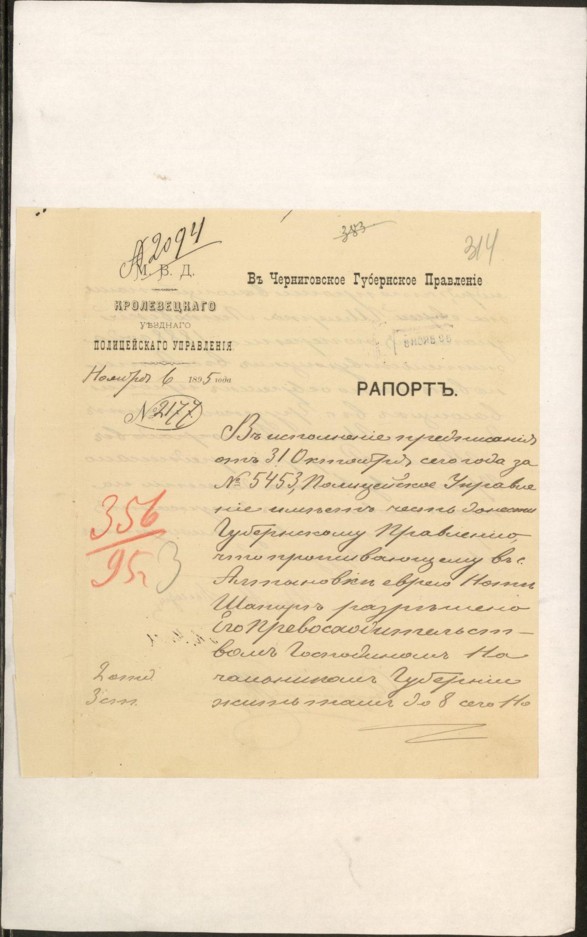 № 2094
383
314
М. В. Д.
КРОЛЕВЕЦКАГО
УѢЗДНАГО
ПОЛИЦЕЙСКАГО УПРАВЛЕНІЯ
Ноября 6 1895 года
№ 2177
Въ Черниговское Губернское Правленіе
РАПОРТЪ.
Въ исполненіе предписанія
отъ 31 Октября сего года за
№ 5453, Полицейское Управле
ніе имѣетъ честь донести
Губернскому Правленію,
что проживающему въ с.
Алтыновкѣ еврею
Шапиръ разрѣшено
Его Превосходительст-
вомъ Господиномъ На
чальникомъ Губерніи
жить тамъ до 8 сего Но
356
95
3
2 отд
3 ст.